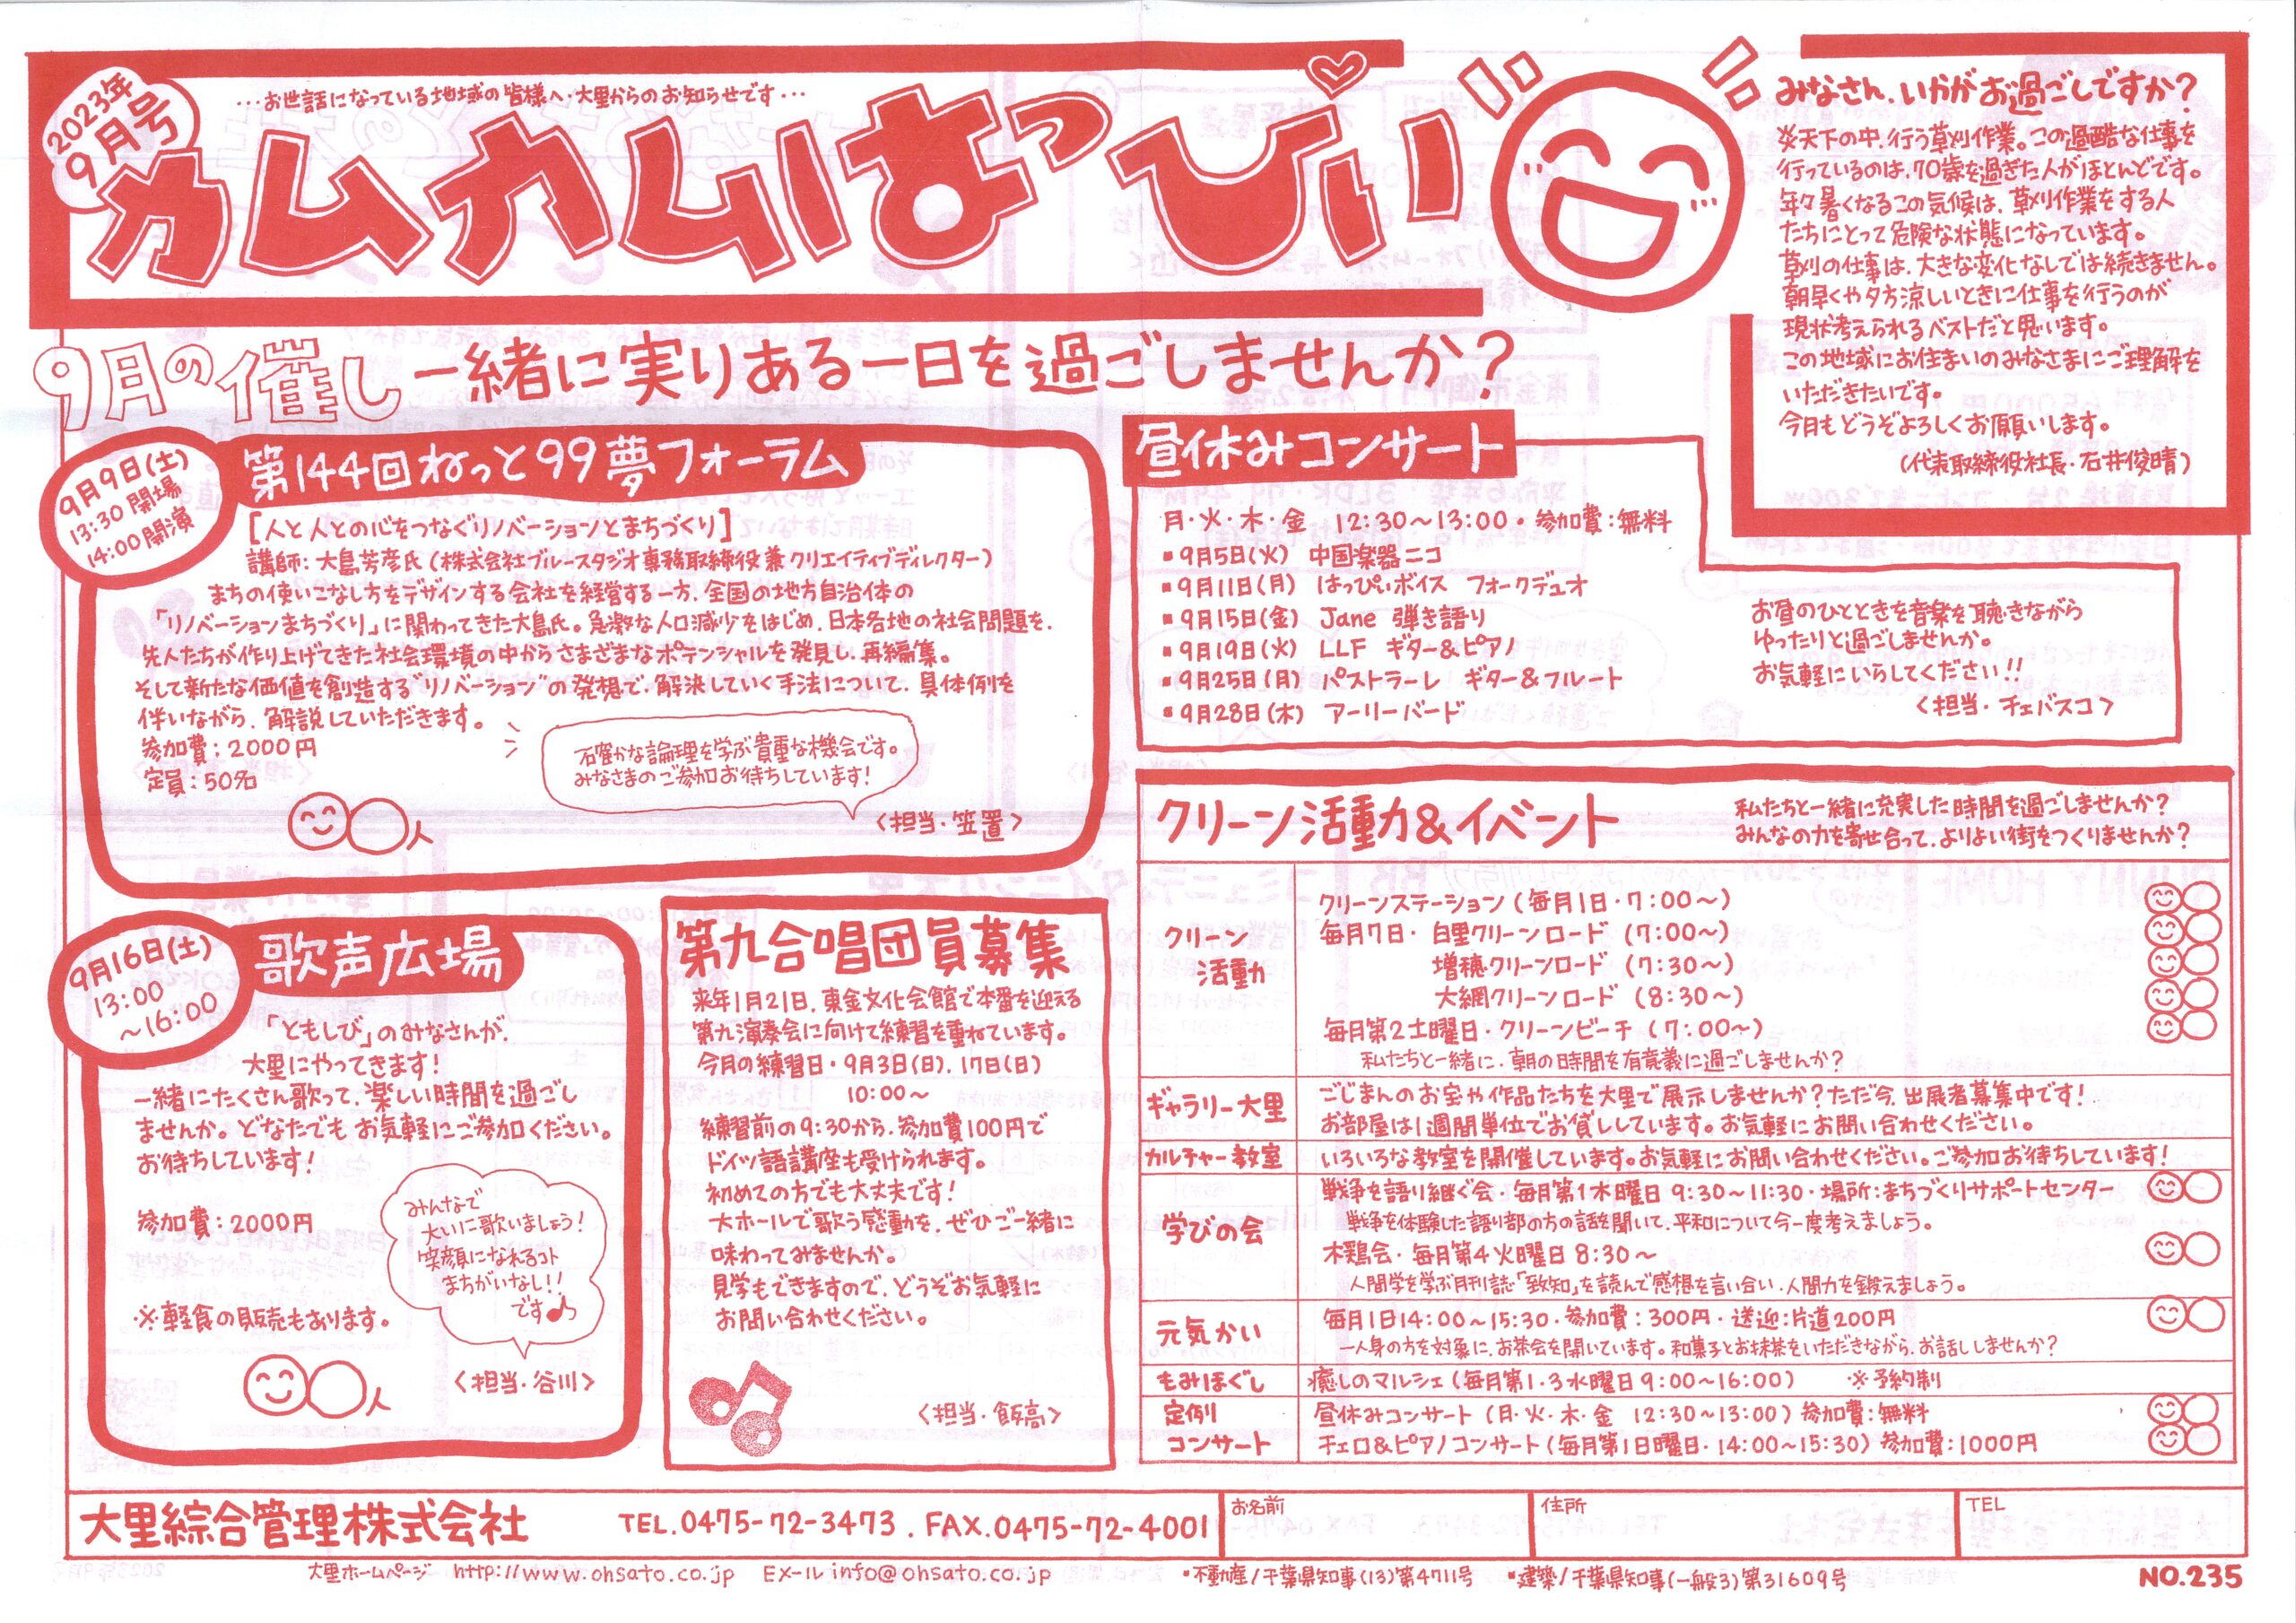 2023年
9月号
…お世話になっている地域の皆様へ・大里からのお知らせです…
カムカムはっぴぃ
みなさん、いかがお過ごしですか？
炎天下の中、行う草刈作業。この過酷な仕事を
行っているのは、70歳を過ぎた人がほとんどです。
年々暑くなるこの気候は、草刈作業をする人
たちにとって危険な状態になっています。
草刈の仕事は、大きな変化なしでは続きません。
朝早くや夕方涼しいときに仕事を行うのが
現状考えられるベストだと思います。
この地域にお住まいのみなさまにご理解を
いただきたいです。
今月もどうぞよろしくお願いします。
(代表取締役社長・石井俊晴)
9月の催し 一緒に実りある一日を過ごしませんか？
9月9日(土)
13:30 開場
14:00 開演
第144回ねっと99夢フォーラム
[人と人との心をつなぐリノベーションとまちづくり]
講師：大島芳彦氏(株式会社ブルースタジオ専務取締役兼クリエイティブディレクター)
まちの使いこなし方をデザインする会社を経営する一方、全国の地方自治体の
「リノベーションまちづくり」に関わってきた大島氏。急激な人口減少をはじめ、日本各地の社会問題を、
先人たちが作り上げてきた社会環境の中からさまざまなポテンシャルを発見し、再編集。
そして新たな価値を創造する“リノベーション”の発想で、解決していく手法について、具体例を
伴いながら、解説していただきます。
参加費：2000円
定員：50名
確かな論理を学ぶ貴重な機会です。
みなさまのご参加お待ちしています！
<担当・笠置>
昼休みコンサート
月・火・木・金 12:30～13:00・参加費：無料
▪9月5日(火) 中国楽器ニコ
▪9月11日(月) はっぴぃボイス フォークデュオ
▪9月15日(金) Jane 弾き語り
▪9月19日(火) LLF ギター&ピアノ
▪9月25日(月) パストラーレ ギター&フルート
▪9月28日(木) アーリーバード
お昼のひとときを音楽を聴きながら
ゆったりと過ごしませんか。
お気軽にいらしてください!!
<担当・チェバスコ>
9月16日(土)
13:00
～16:00
歌声広場
「ともしび」のみなさんが、
大里にやってきます！
一緒にたくさん歌って、楽しい時間を過ごし
ませんか。どなたでもお気軽にご参加ください。
お待ちしています！
参加費：2000円
※軽食の販売もあります。
みんなで
大いに歌いましょう！
笑顔になれるコト
まちがいなし!!
です♪
<担当・谷川>
第九合唱団員募集
来年1月21日、東金文化会館で本番を迎える
第九演奏会に向けて練習を重ねています。
今月の練習日・9月3日(日)、17日(日)
10:00～
練習前の9:30から、参加費100円で
ドイツ語講座も受けられます。
初めての方でも大丈夫です！
大ホールで歌う感動を、ぜひご一緒に
味わってみませんか。
見学もできますので、どうぞお気軽に
お問い合わせください。
<担当・飯高>
クリーン活動&イベント
私たちと一緒に充実した時間を過ごしませんか？
みんなの力を寄せ合って、よりよい街をつくりませんか？
クリーン
活動
クリーンステーション(毎月1日・7:00～)
毎月7日・白里クリーンロード (7:00～)
増穂クリーンロード (7:30～)
大網クリーンロード (8:30～)
毎月第2土曜日・クリーンビーチ (7:00～)
私たちと一緒に、朝の時間を有意義に過ごしませんか？
ギャラリー大里
ごじまんのお宝や作品たちを大里で展示しませんか？ただ今、出展者募集中です！
お部屋は1週間単位でお貸ししています。お気軽にお問い合わせください。
カルチャー教室
いろいろな教室を開催しています。お気軽にお問い合わせください。ご参加お待ちしています！
学びの会
戦争を語り継ぐ会・毎月第1木曜日 9:30～11:30・場所：まちづくりサポートセンター
戦争を体験した語り部の方の話を聞いて、平和について今一度考えましょう。
木鶏会・毎月第4火曜日 8:30～
人間学を学ぶ月刊誌・「致知」を読んで感想を言い合い、人間力を鍛えましょう。
元気かい
毎月1日14:00～15:30・参加費：300円・送迎：片道200円
一人身の方を対象に、お茶会を開いています。和菓子とお抹茶をいただきながら、お話ししませんか？
もみほぐし
癒しのマルシェ(毎月第1・3水曜日 9:00～16:00) ※予約制
定例
コンサート
昼休みコンサート (月・火・木・金 12:30～13:00) 参加費：無料
チェロ&ピアノコンサート (毎月第1日曜日・14:00～15:30) 参加費：1000円
大里綜合管理株式会社
TEL.0475-72-3473．FAX.0475-72-4001
お名前
住所
TEL
大里ホームページ http://www.ohsato.co.jp Eメール info@ohsato.co.jp
▪不動産/千葉県知事(13)第4711号 ▪建築/千葉県知事(一般3)第31609号
NO.235